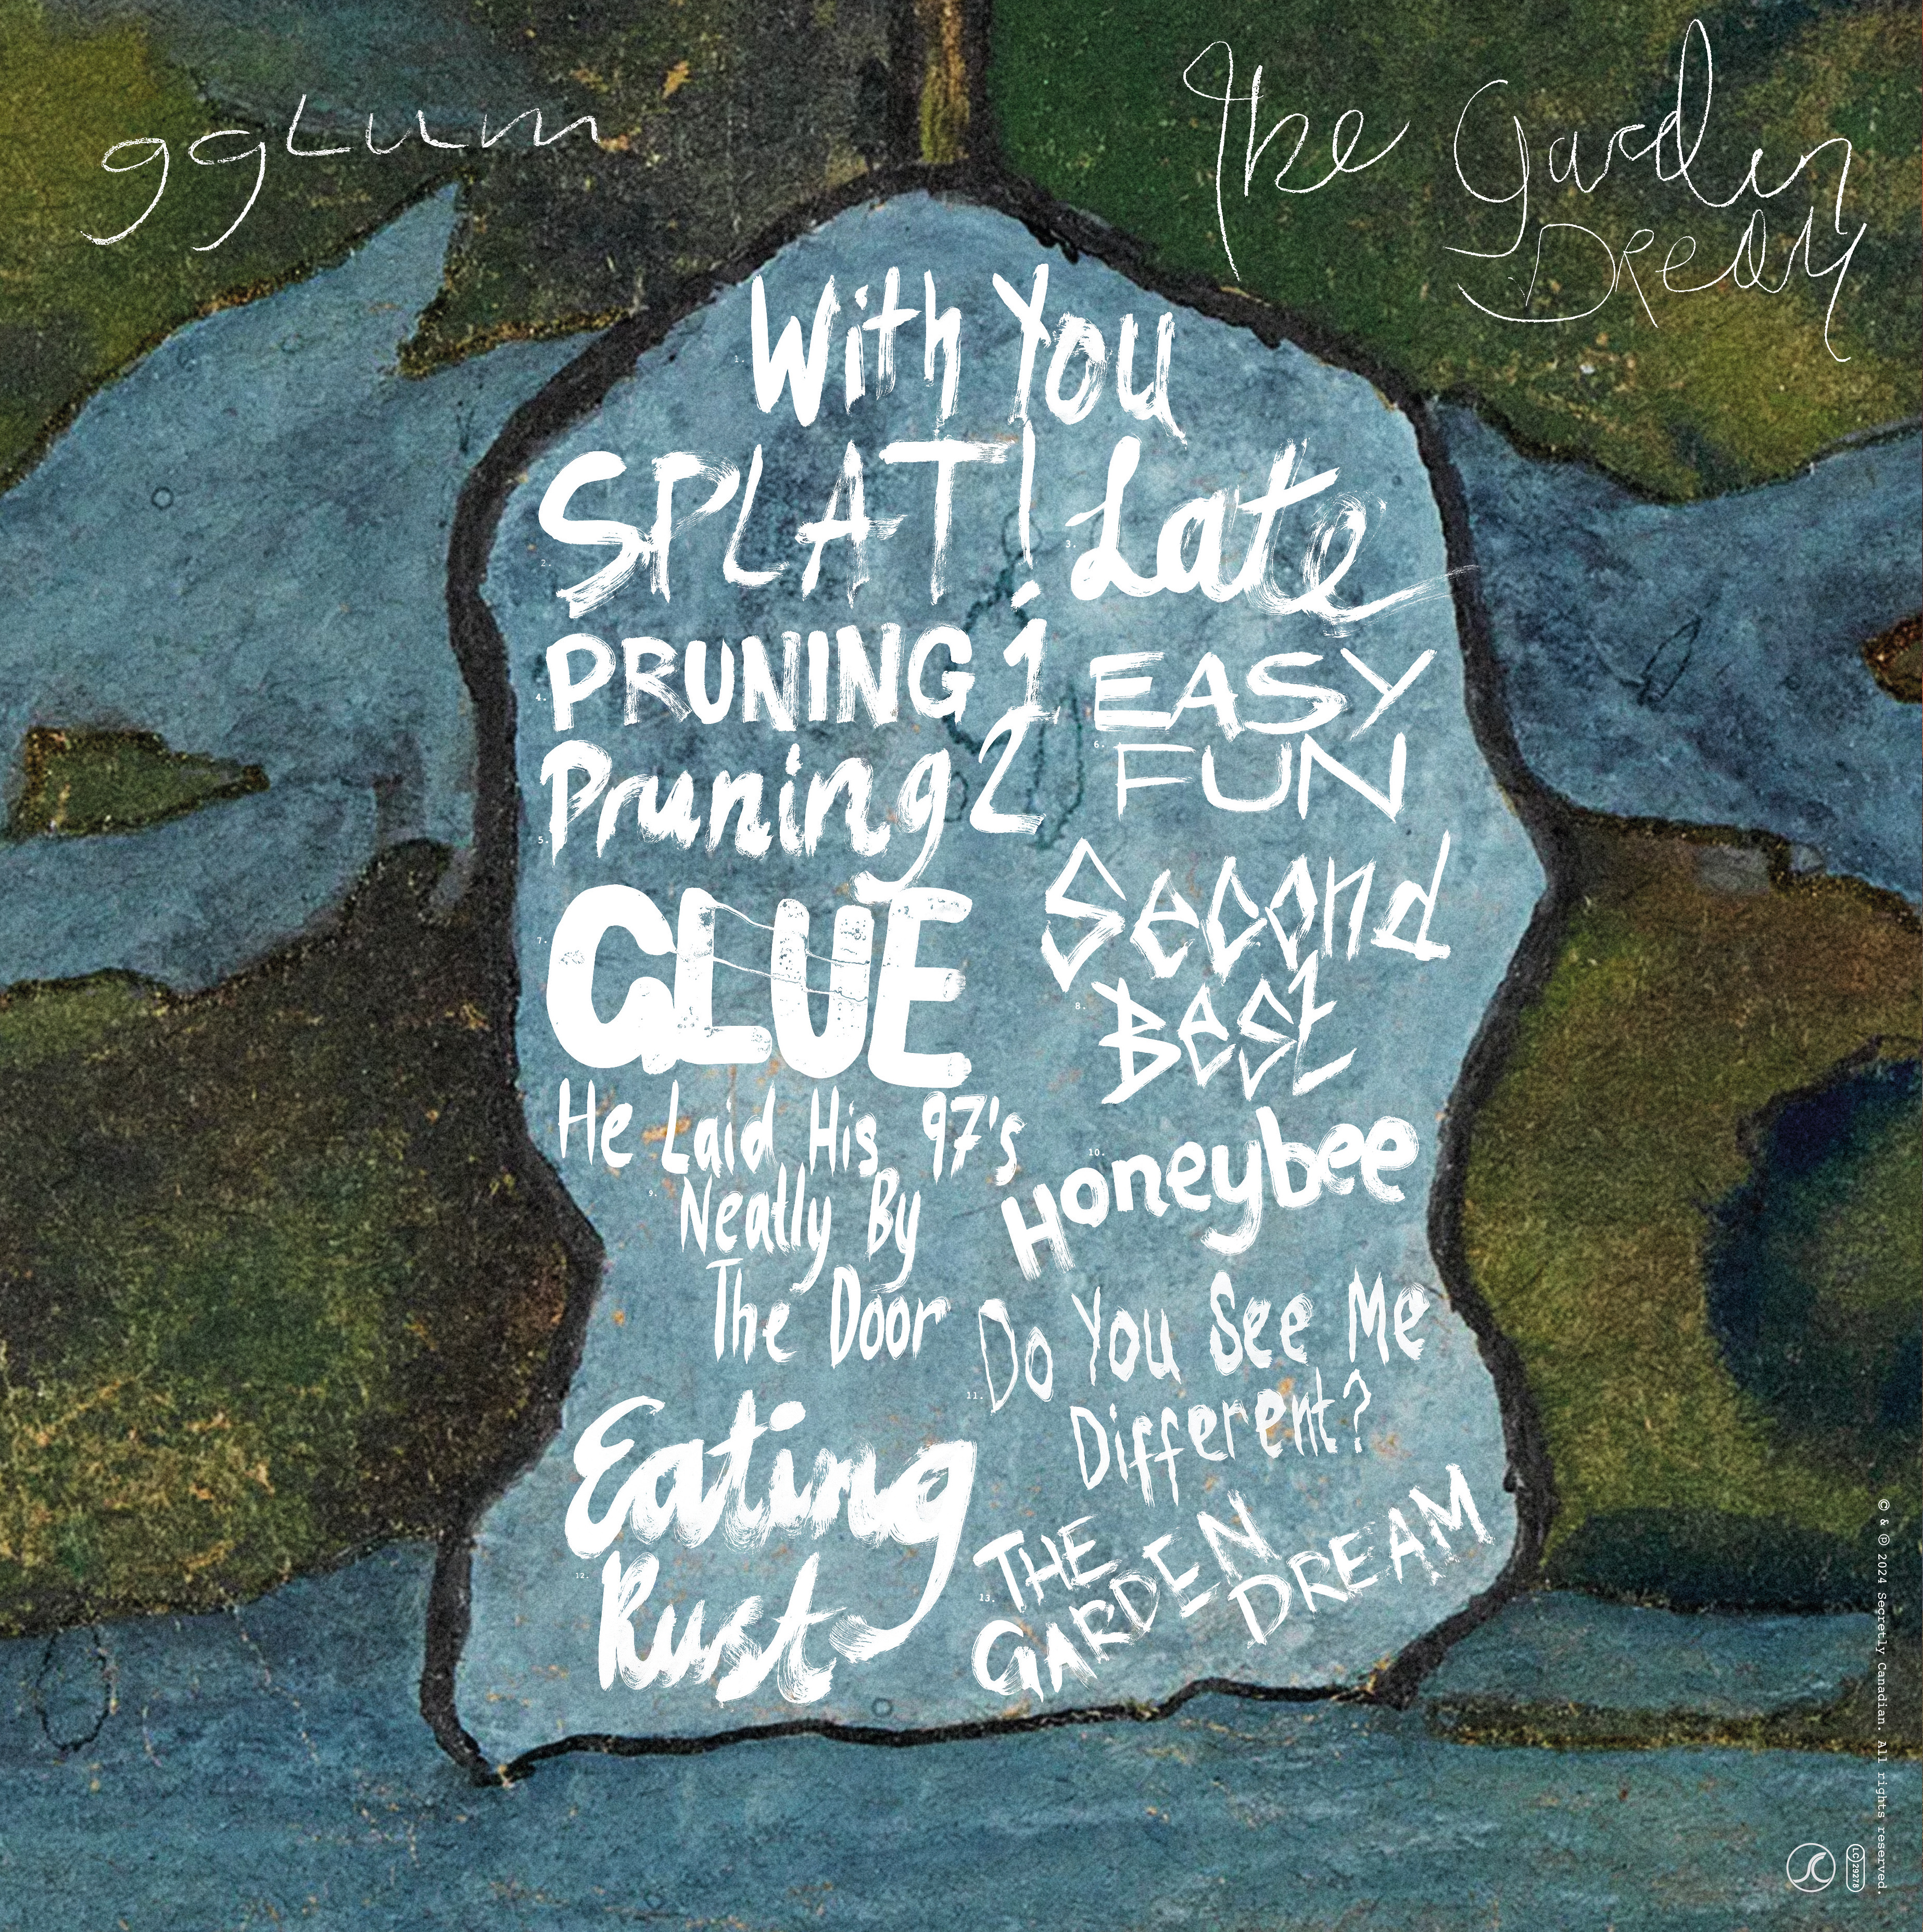 ggLum
The Garden
Dream
1. With You
2. SPLAT!
3. Late
4. PRUNING 1
5. Pruning 2
6. EASY
FUN
7. GLUE
8. Second
Best
9. He Laid His 97's
Neatly By
The Door
10. Honeybee
11. Do You See Me
Different?
12. Eating
Rust
13. THE
GARDEN
DREAM
© & ℗ 2024 Secretly Canadian. All rights reserved.
SC
LC 29278